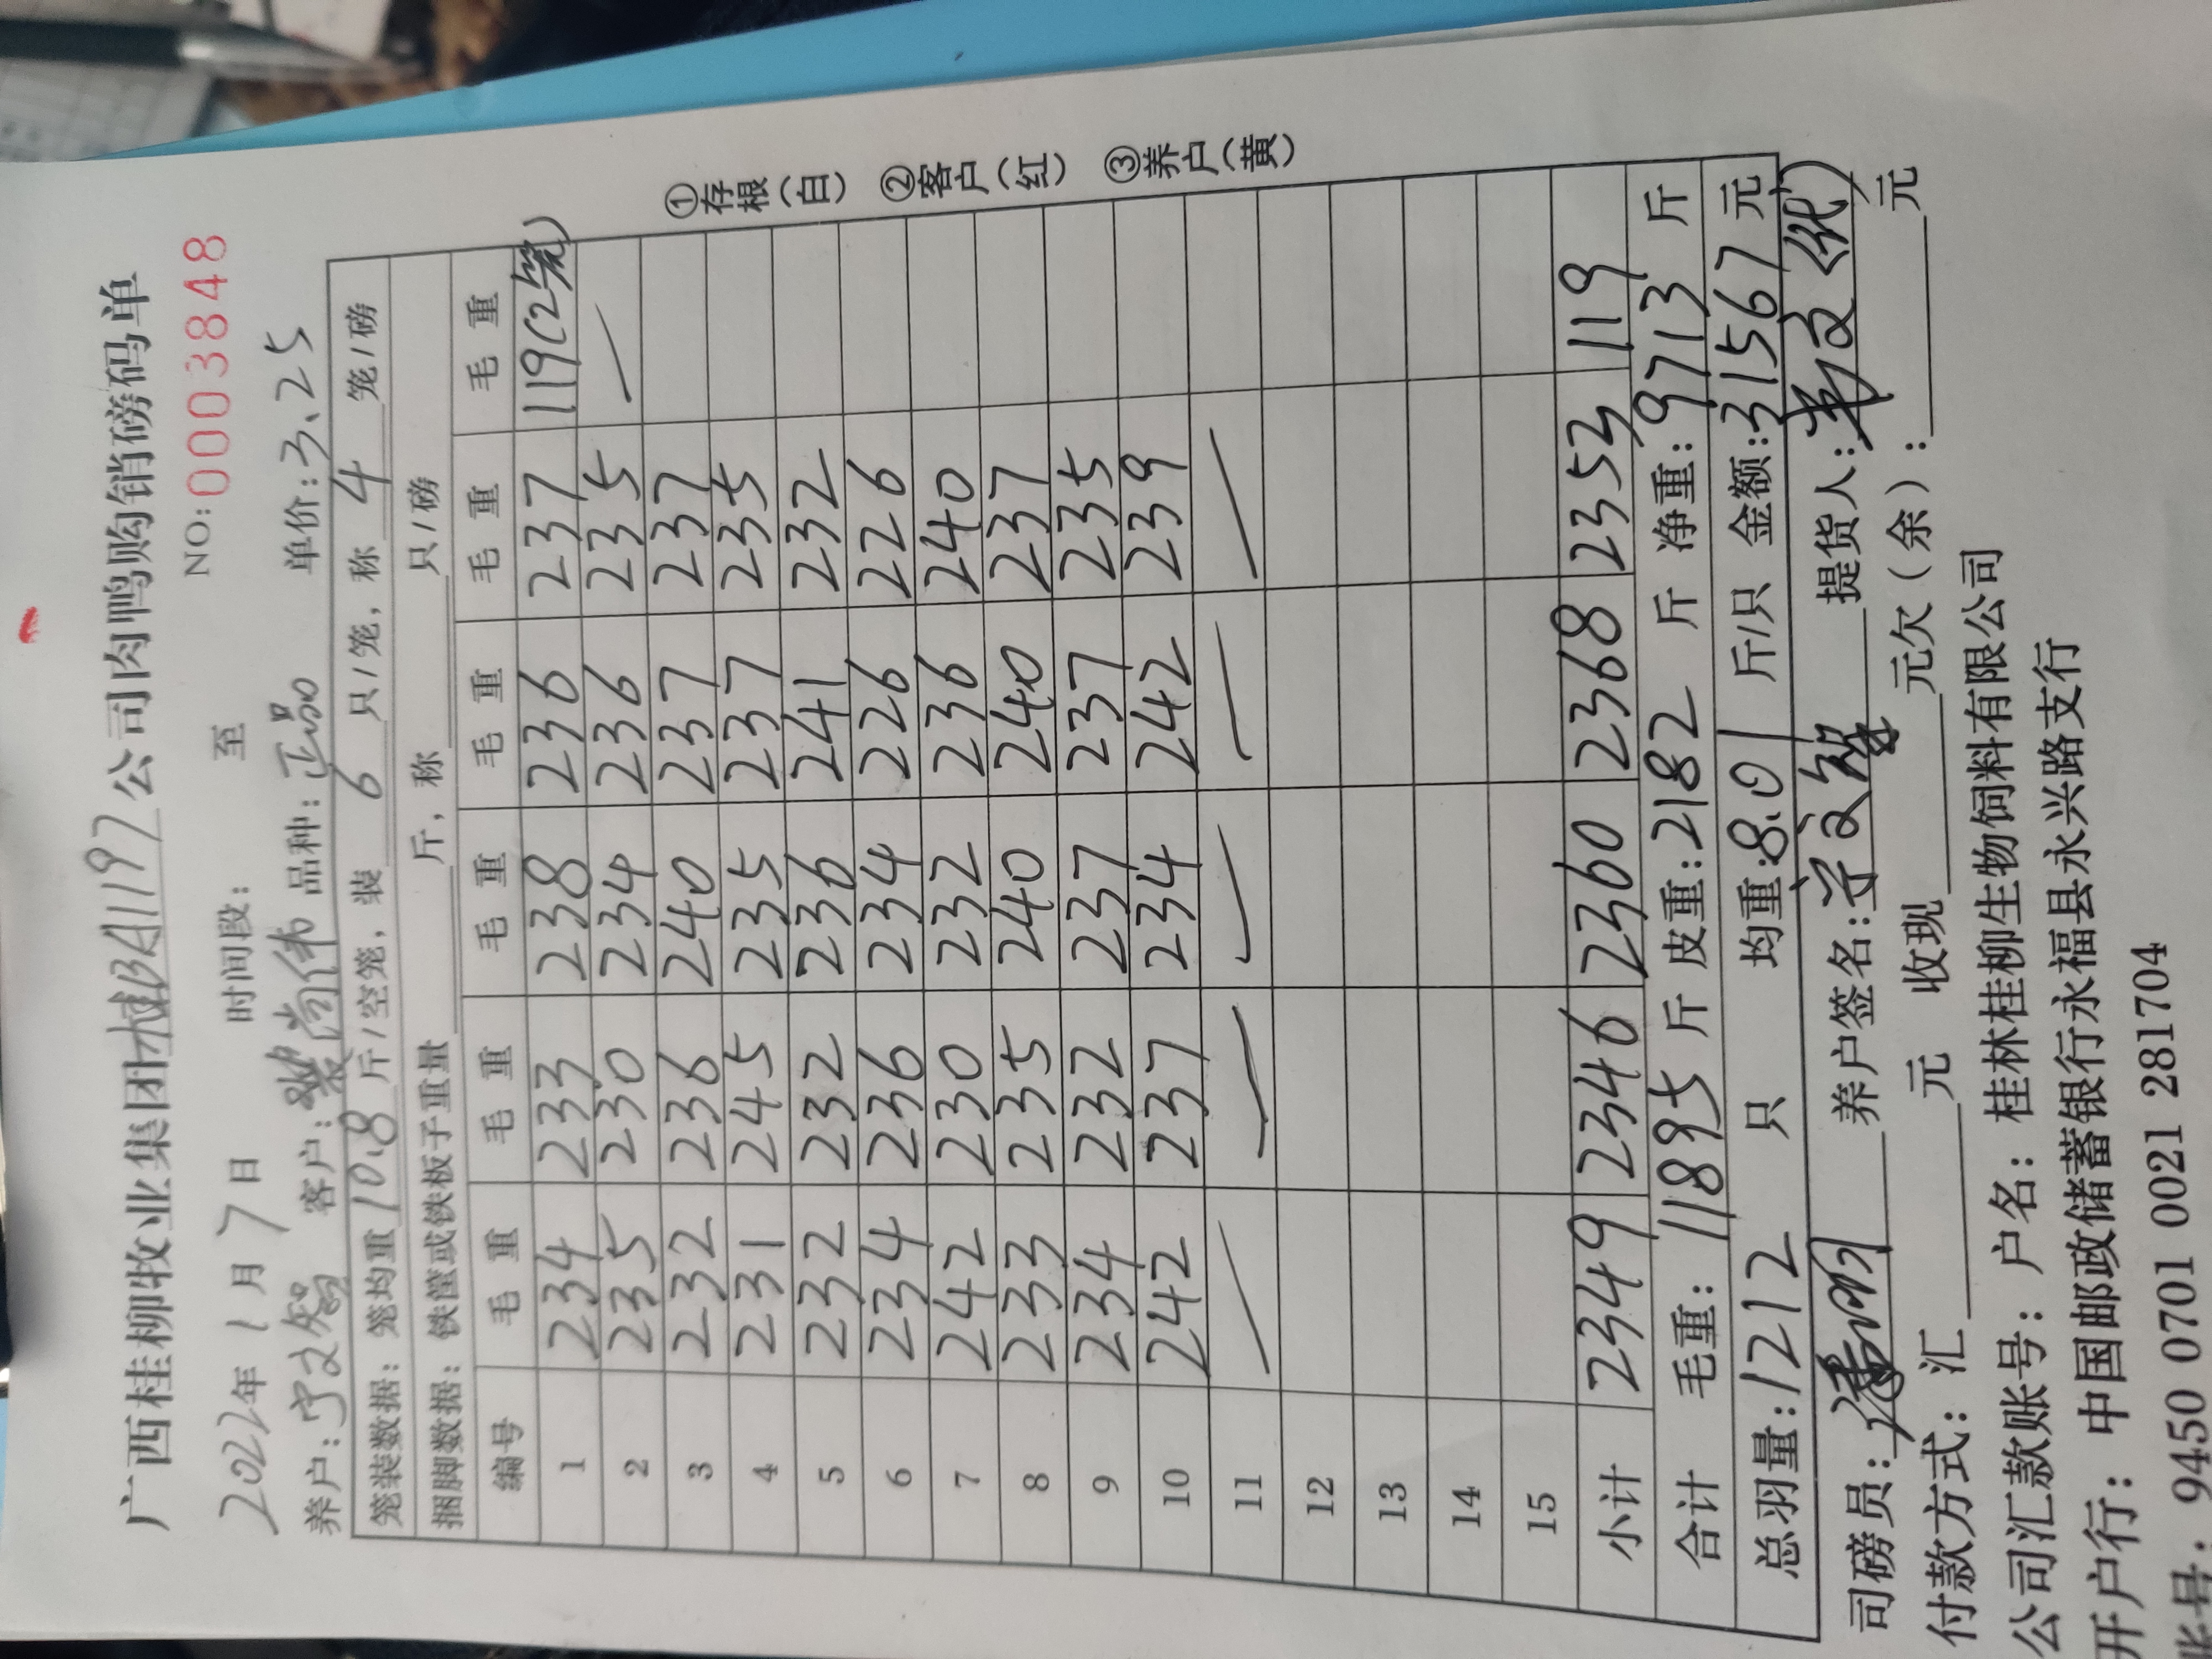 广西桂柳牧业集团桂BA1197公司肉鸭购销磅码单
NO:0003848
2022年1月7日 时间段: 至
养户:宁文智 客户:裴尚伟 品种:正品 单价:3.25
笼装数据:笼均重10.8斤/空笼,装6只/笼,称4笼/磅
捆脚数据:铁筐或铁板子重量 斤,称 只/磅
编号 毛重 毛重 毛重 毛重 毛重 毛重
1 234 233 238 236 237 119(2笼)
2 235 230 234 236 235
3 232 236 240 237 237
4 231 245 235 237 235
5 232 232 236 241 232
6 234 236 234 226 226
7 242 230 232 236 240
8 233 235 240 240 237
9 234 232 237 237 235
10 242 237 234 242 239
11
12
13
14
15
小计 2349 2346 2360 2368 2353 119
合计 毛重:11895斤 皮重:2182斤 净重:9713斤
总羽量:1212只 均重:8.01斤/只 金额:31567元
司磅员: 养户签名:宁文智 提货人: (代)
付款方式:汇 元 收现 元欠(余): 元
公司汇款账号:户名:桂林桂柳生物饲料有限公司
开户行:中国邮政储蓄银行永福县永兴路支行
账号:9450 0701 0021 281704
①存根(白) ②客户(红) ③养户(黄)